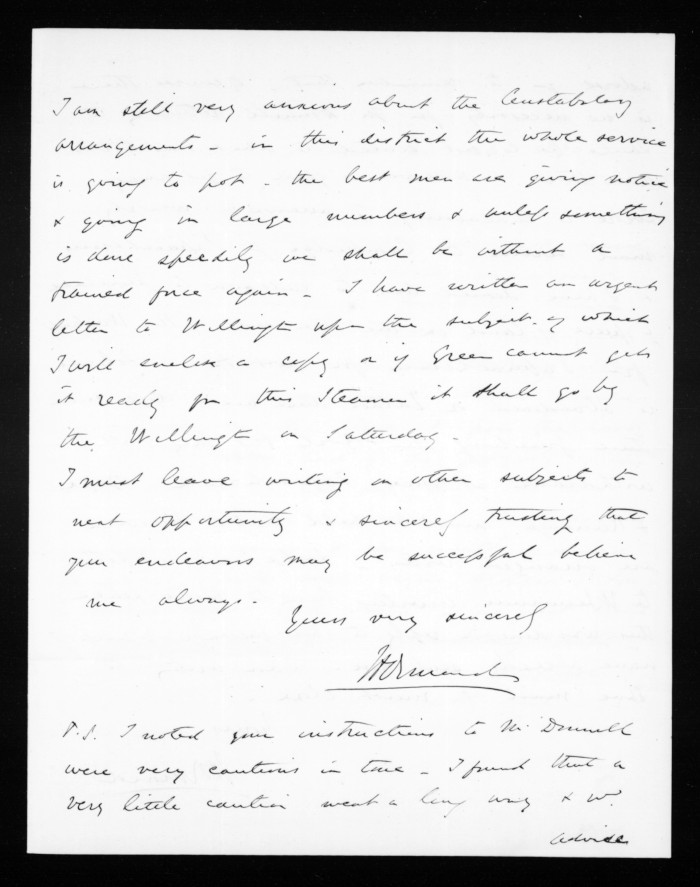 I am still very anxious about the Constabulary
arrangements - in this district the whole service
is going to pot - the best men are giving notice
& going in large numbers & unless something
is done speedily we shall be without a
trained force again - I have written an urgent
letter to Wellingtn upon the subject of which
I will enclose a copy or if Green cannot get
it ready for this Steamer it shall go by
the Wellingtn on Saturday -
I must leave writing on other subjects to
next opportunity & sincerely trusting that
your endeavors may be successful believe
me always -
Yours very sincerely
J D Ormond
P.S. I noted your instructions to McDonnell
were very cautious in tone - I found that a
very little caution went a long way & wd.
advise